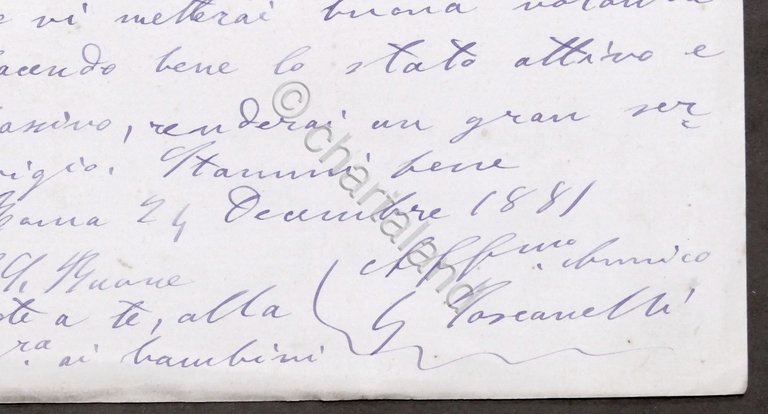 e vi metterai buona volontà
facendo bene lo stato attivo e
passivo, renderai un gran ser-
vigio. Stammi bene
Roma 24 Decembre 1881
Aff.mo Amico
G Toscanelli
P.S. Buone
feste a te, alla
ra ai bambini
© chartaland